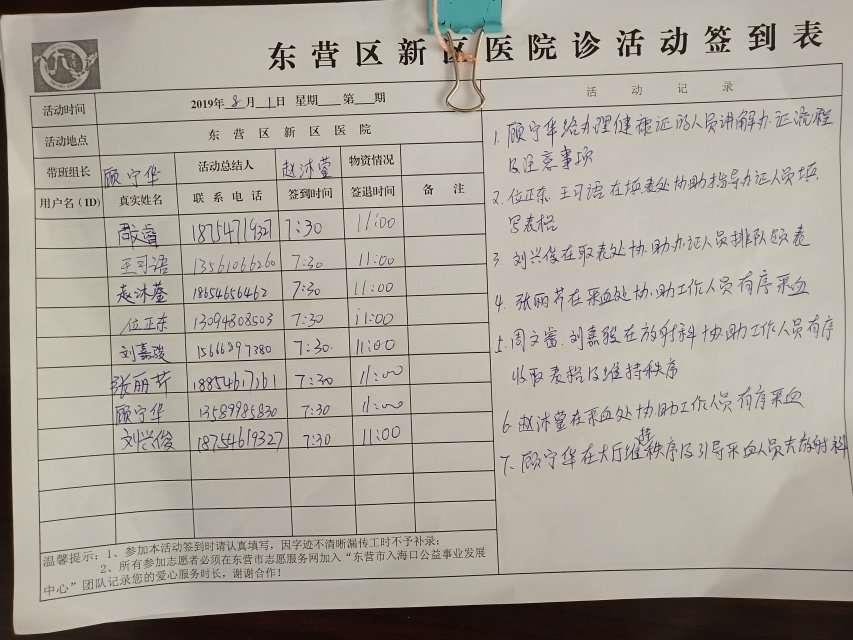 东营区新区医院诊活动签到表
活动时间 2019年 8 月 1 日 星期 第 期
活动地点 东营区新区医院
带班组长 顾宁华 活动总结人 赵沐莹 物资情况
用户名(ID) 真实姓名 联系电话 签到时间 签退时间 备注
18754719327 7:30 11:00
王可语 13561066260 7:30 11:00
赵沐莹 18654656462 7:30 11:00
位正东 13094808503 7:30 11:00
刘嘉骏 15666297380 7:30 11:00
张丽芹 18854617161 7:30 11:00
顾宁华 13589985830 7:30 11:00
刘兴俊 18754619327 7:30 11:00
温馨提示:1、参加本活动签到时请认真填写,因字迹不清晰漏传工时不予补录;
2、所有参加志愿者必须在东营市志愿服务网加入“东营市入海口公益事业发展
中心”团队记录您的爱心服务时长,谢谢合作!
活动记录
1. 顾宁华给办理健康证的人员讲解办证流程
及注意事项
2. 位正东、王可语在填表处协助指导办证人员填
写表格
3 刘兴俊在取表处协助办证人员排队领表
4. 张丽芹在采血处协助工作人员有序采血
5. 周文睿、刘嘉骏在放射科协助工作人员有序
收取表格及维持秩序
6 赵沐莹在采血处协助工作人员有序采血
7. 顾宁华在大厅维持秩序及引导采血人员去放射科